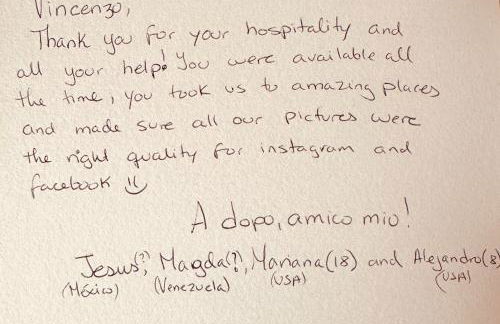 Vincenzo,
Thank you for your hospitality and
all your help! You were available all
the time, you took us to amazing places
and made sure all our pictures were
the right quality for instagram and
facebook
A dopo, amico mio!
Jesus(?), Magda(?), Mariana(18) and Alejandro(8)
(México) (Venezuela) (USA) (USA)